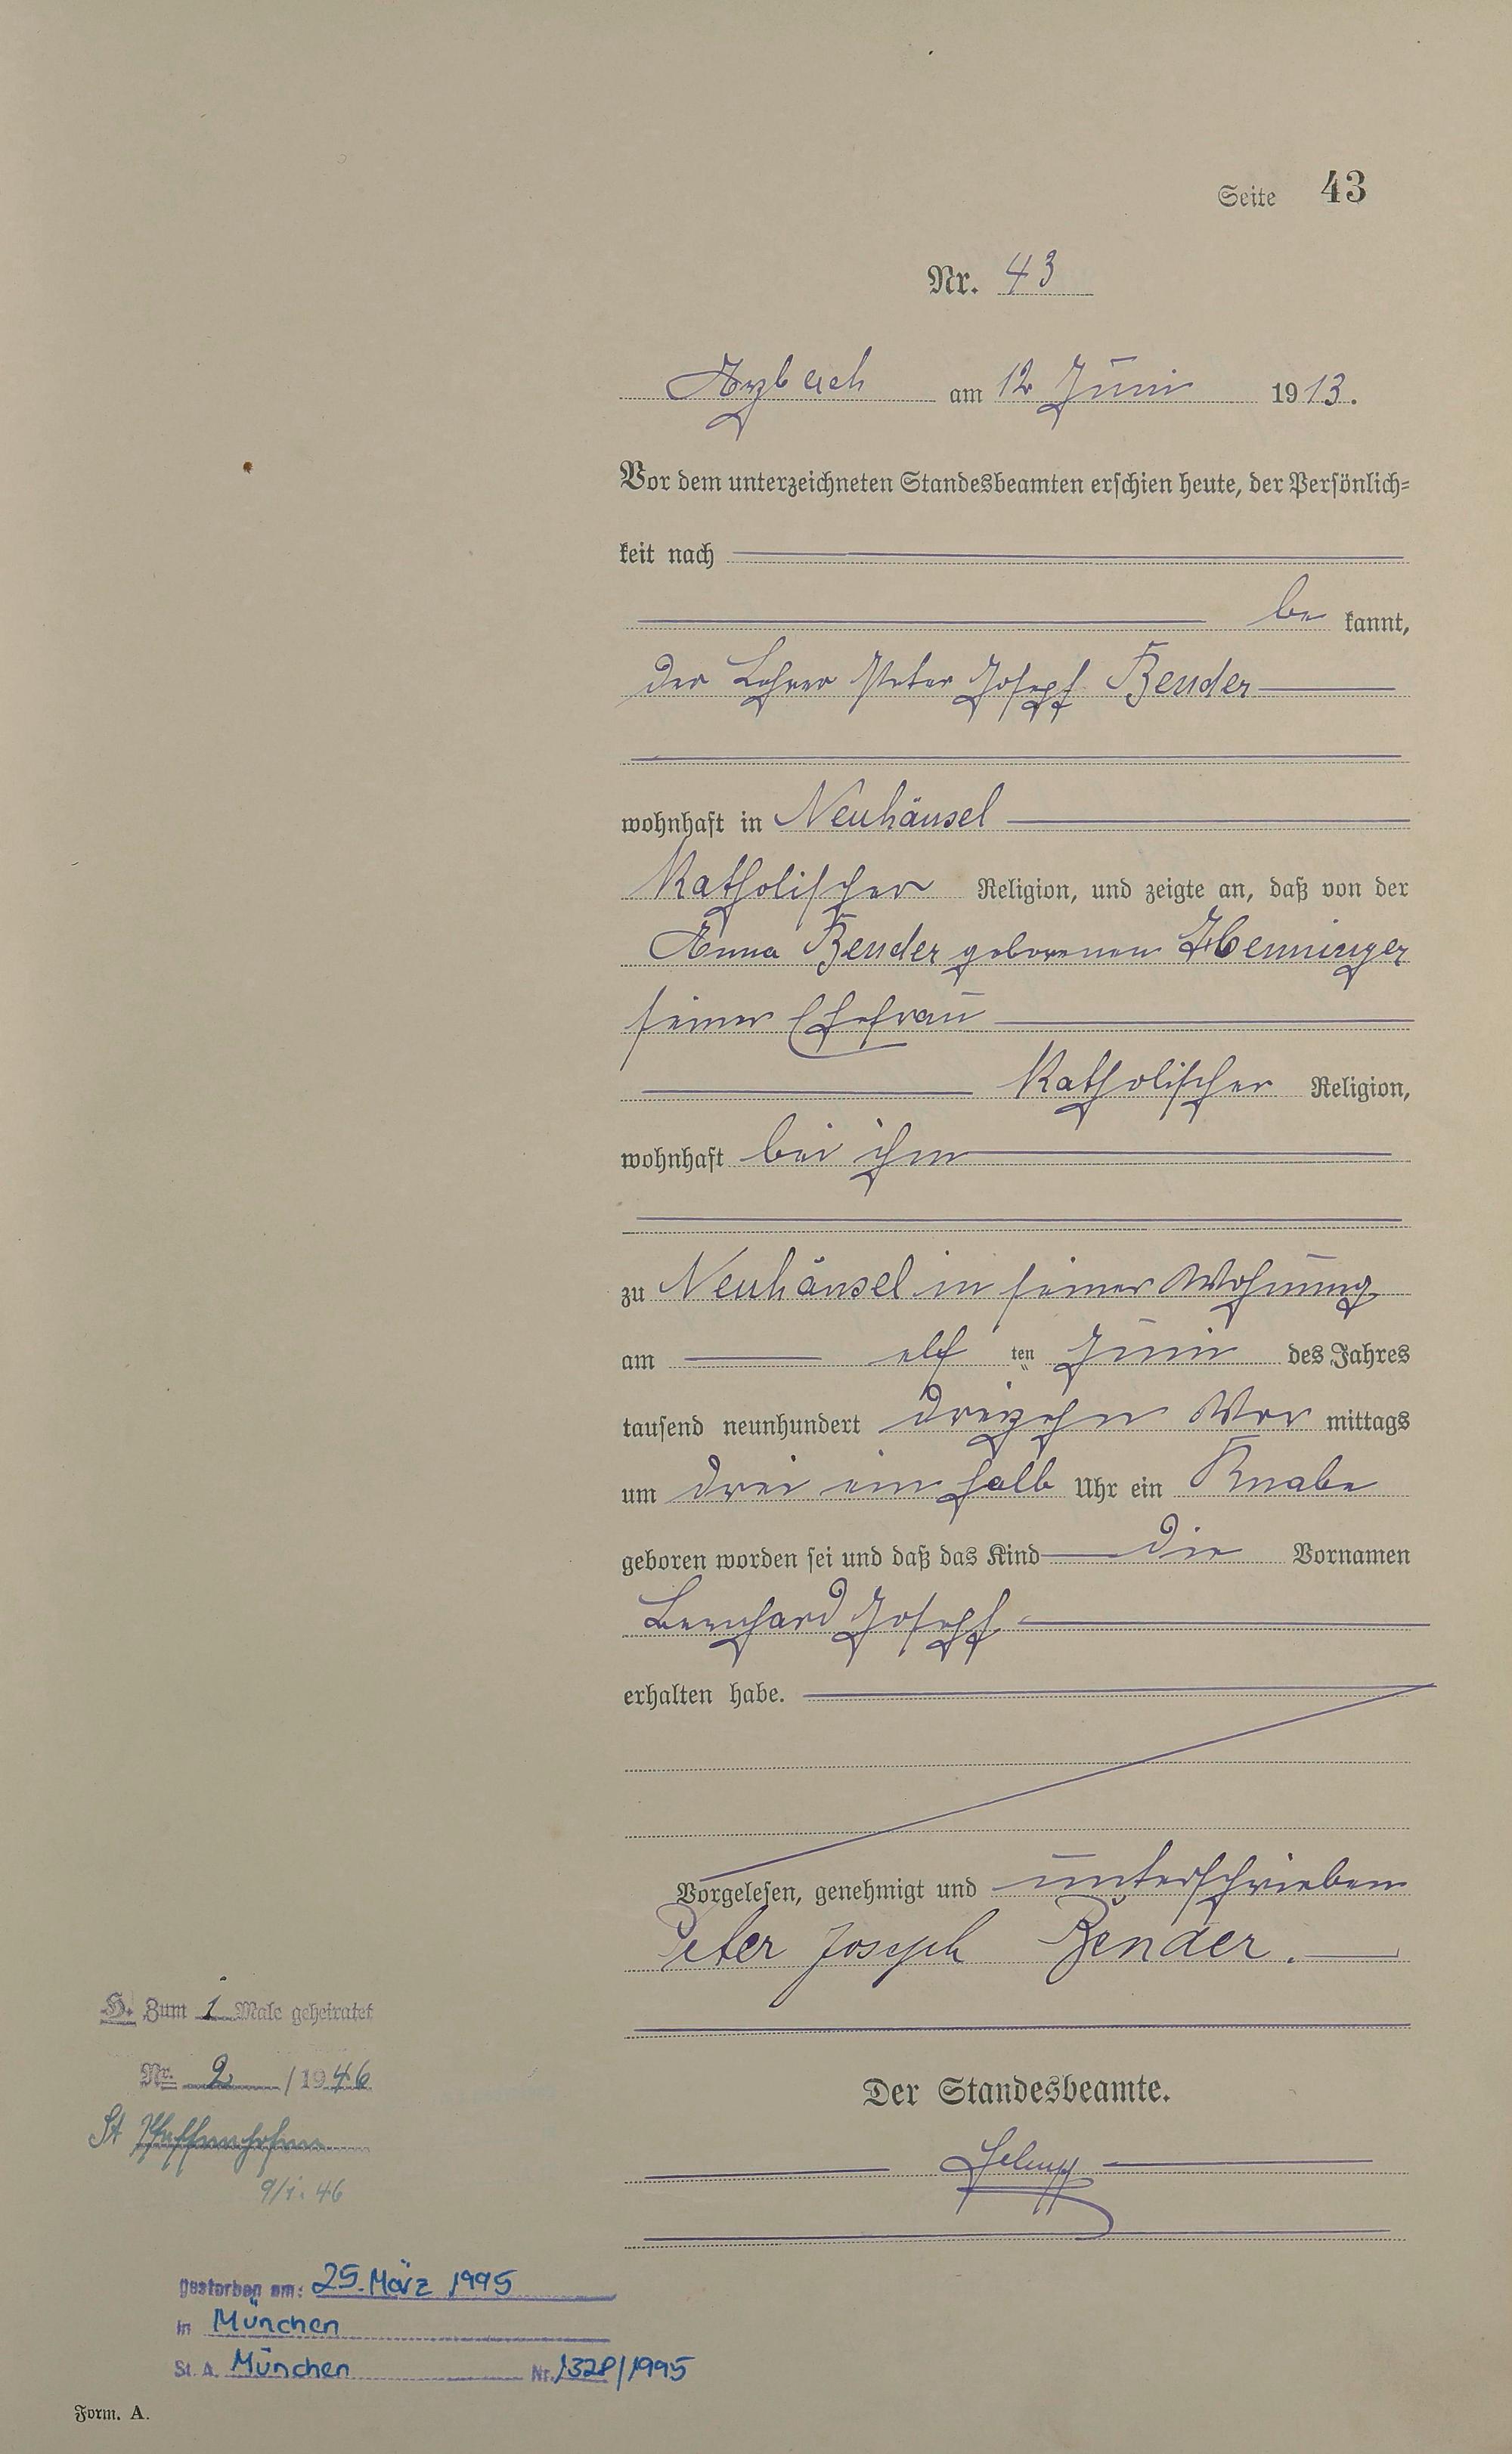 Seite 43
Nr. 43
Arzbach am 12 Juni 1913.
Vor dem unterzeichneten Standesbeamten erschien heute, der Persönlich=
keit nach
be kannt,
der Lehrer Peter Josepf Bender
wohnhaft in Neuhäusel
Katholischer Religion, und zeigte an, daß von der
Anna Bender geborenen Henninger
seiner Ehefrau
Katholischer Religion,
wohnhaft bei ihm
zu Neuhäusel in seiner Wohnung
am elf ten Juni des Jahres
tausend neunhundert dreizehn Vor mittags
um drei ein halb Uhr ein Knabe
geboren worden sei und daß das Kind die Vornamen
Bernhard Josepf
erhalten habe.
Vorgelesen, genehmigt und unterschrieben
Peter Joseph Bender.
Der Standesbeamte.
H. Zum 1 Male geheiratet
Nr. 2 / 1946
St Pfaffenhofen
9/1. 46
gestorben am: 25. März 1995
in München
St. A. München Nr. 1328/1995
Form. A.